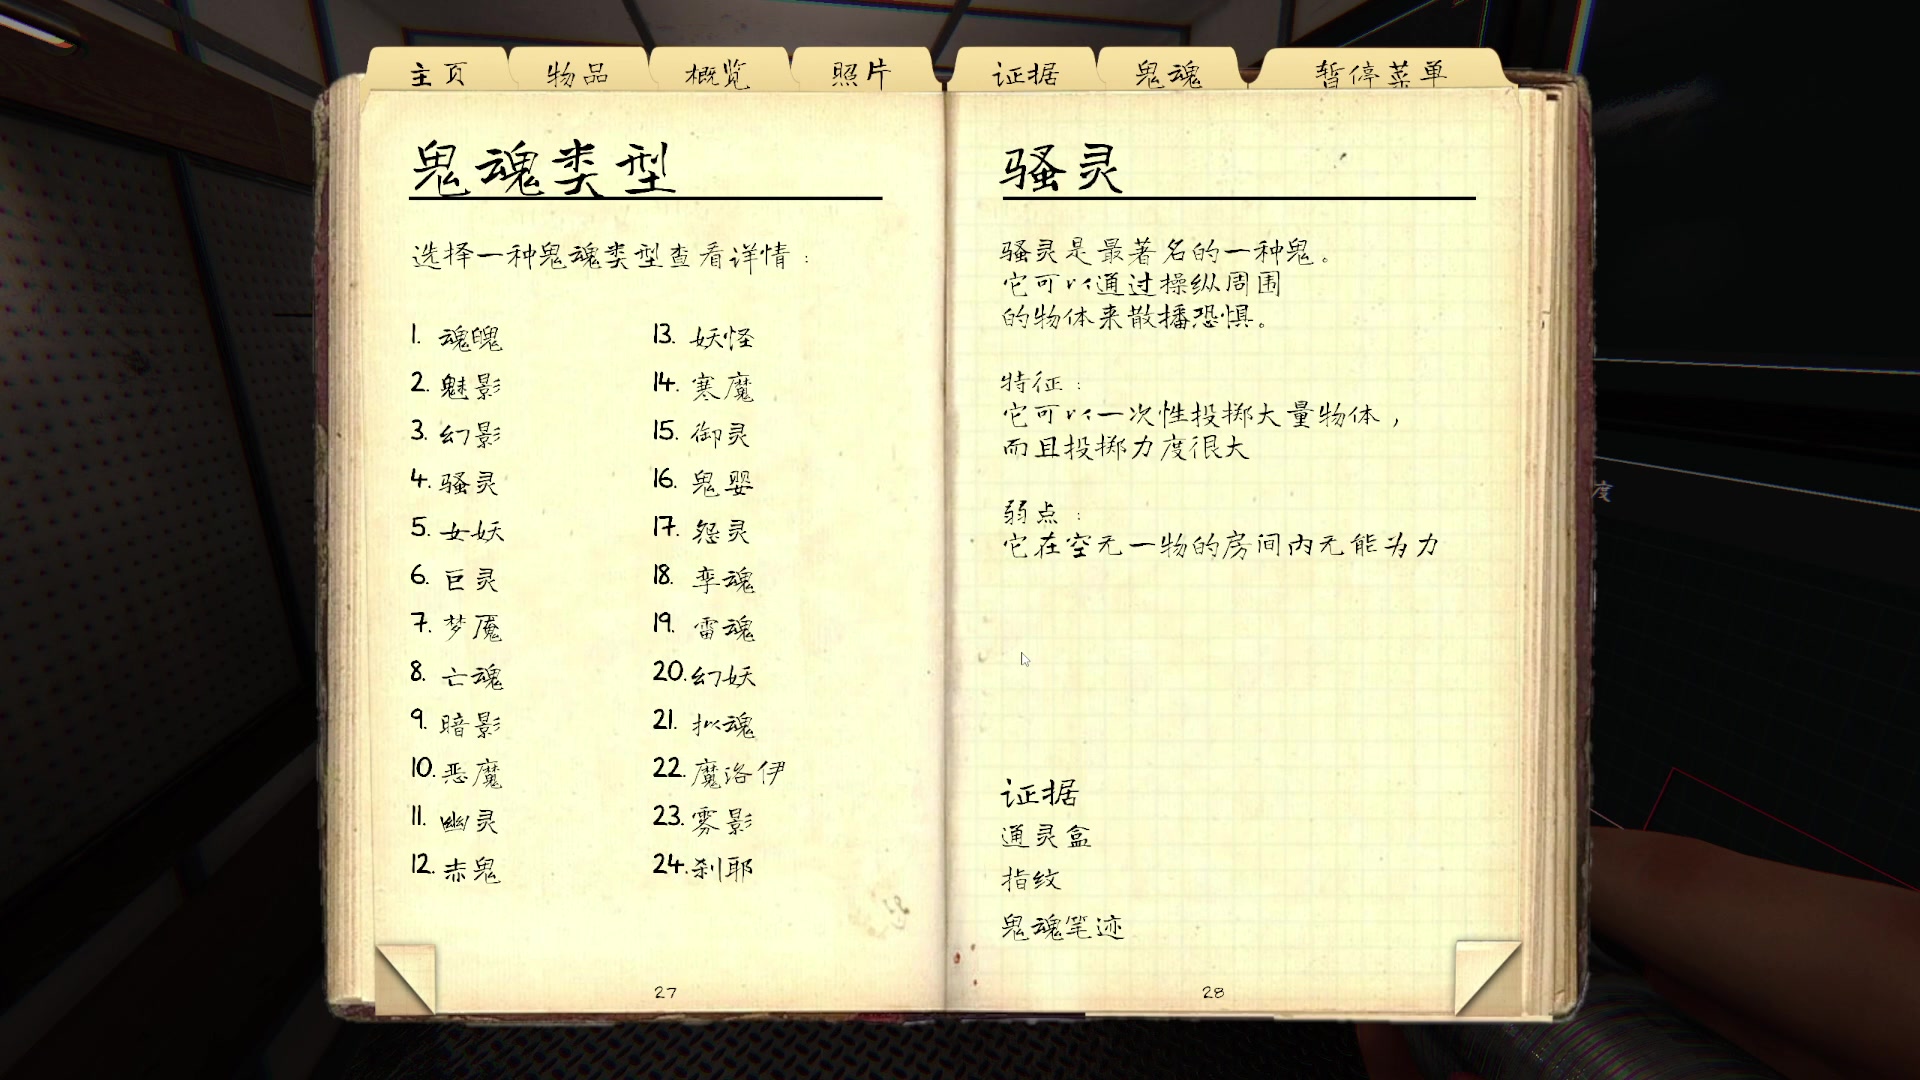 主页 物品 概览 照片 证据 鬼魂 暂停菜单
鬼魂类型
选择一种鬼魂类型查看详情：
1. 魂魄
2. 魅影
3. 幻影
4. 骚灵
5. 女妖
6. 巨灵
7. 梦魇
8. 亡魂
9. 暗影
10. 恶魔
11. 幽灵
12. 赤鬼
13. 妖怪
14. 寒魔
15. 御灵
16. 鬼婴
17. 怨灵
18. 孪魂
19. 雷魂
20. 幻妖
21. 拟魂
22. 魔洛伊
23. 雾影
24. 刹耶
27
骚灵
骚灵是最著名的一种鬼。
它可以通过操纵周围
的物体来散播恐惧。
特征：
它可以一次性投掷大量物体，
而且投掷力度很大
弱点：
它在空无一物的房间内无能为力
证据
通灵盒
指纹
鬼魂笔迹
28
度